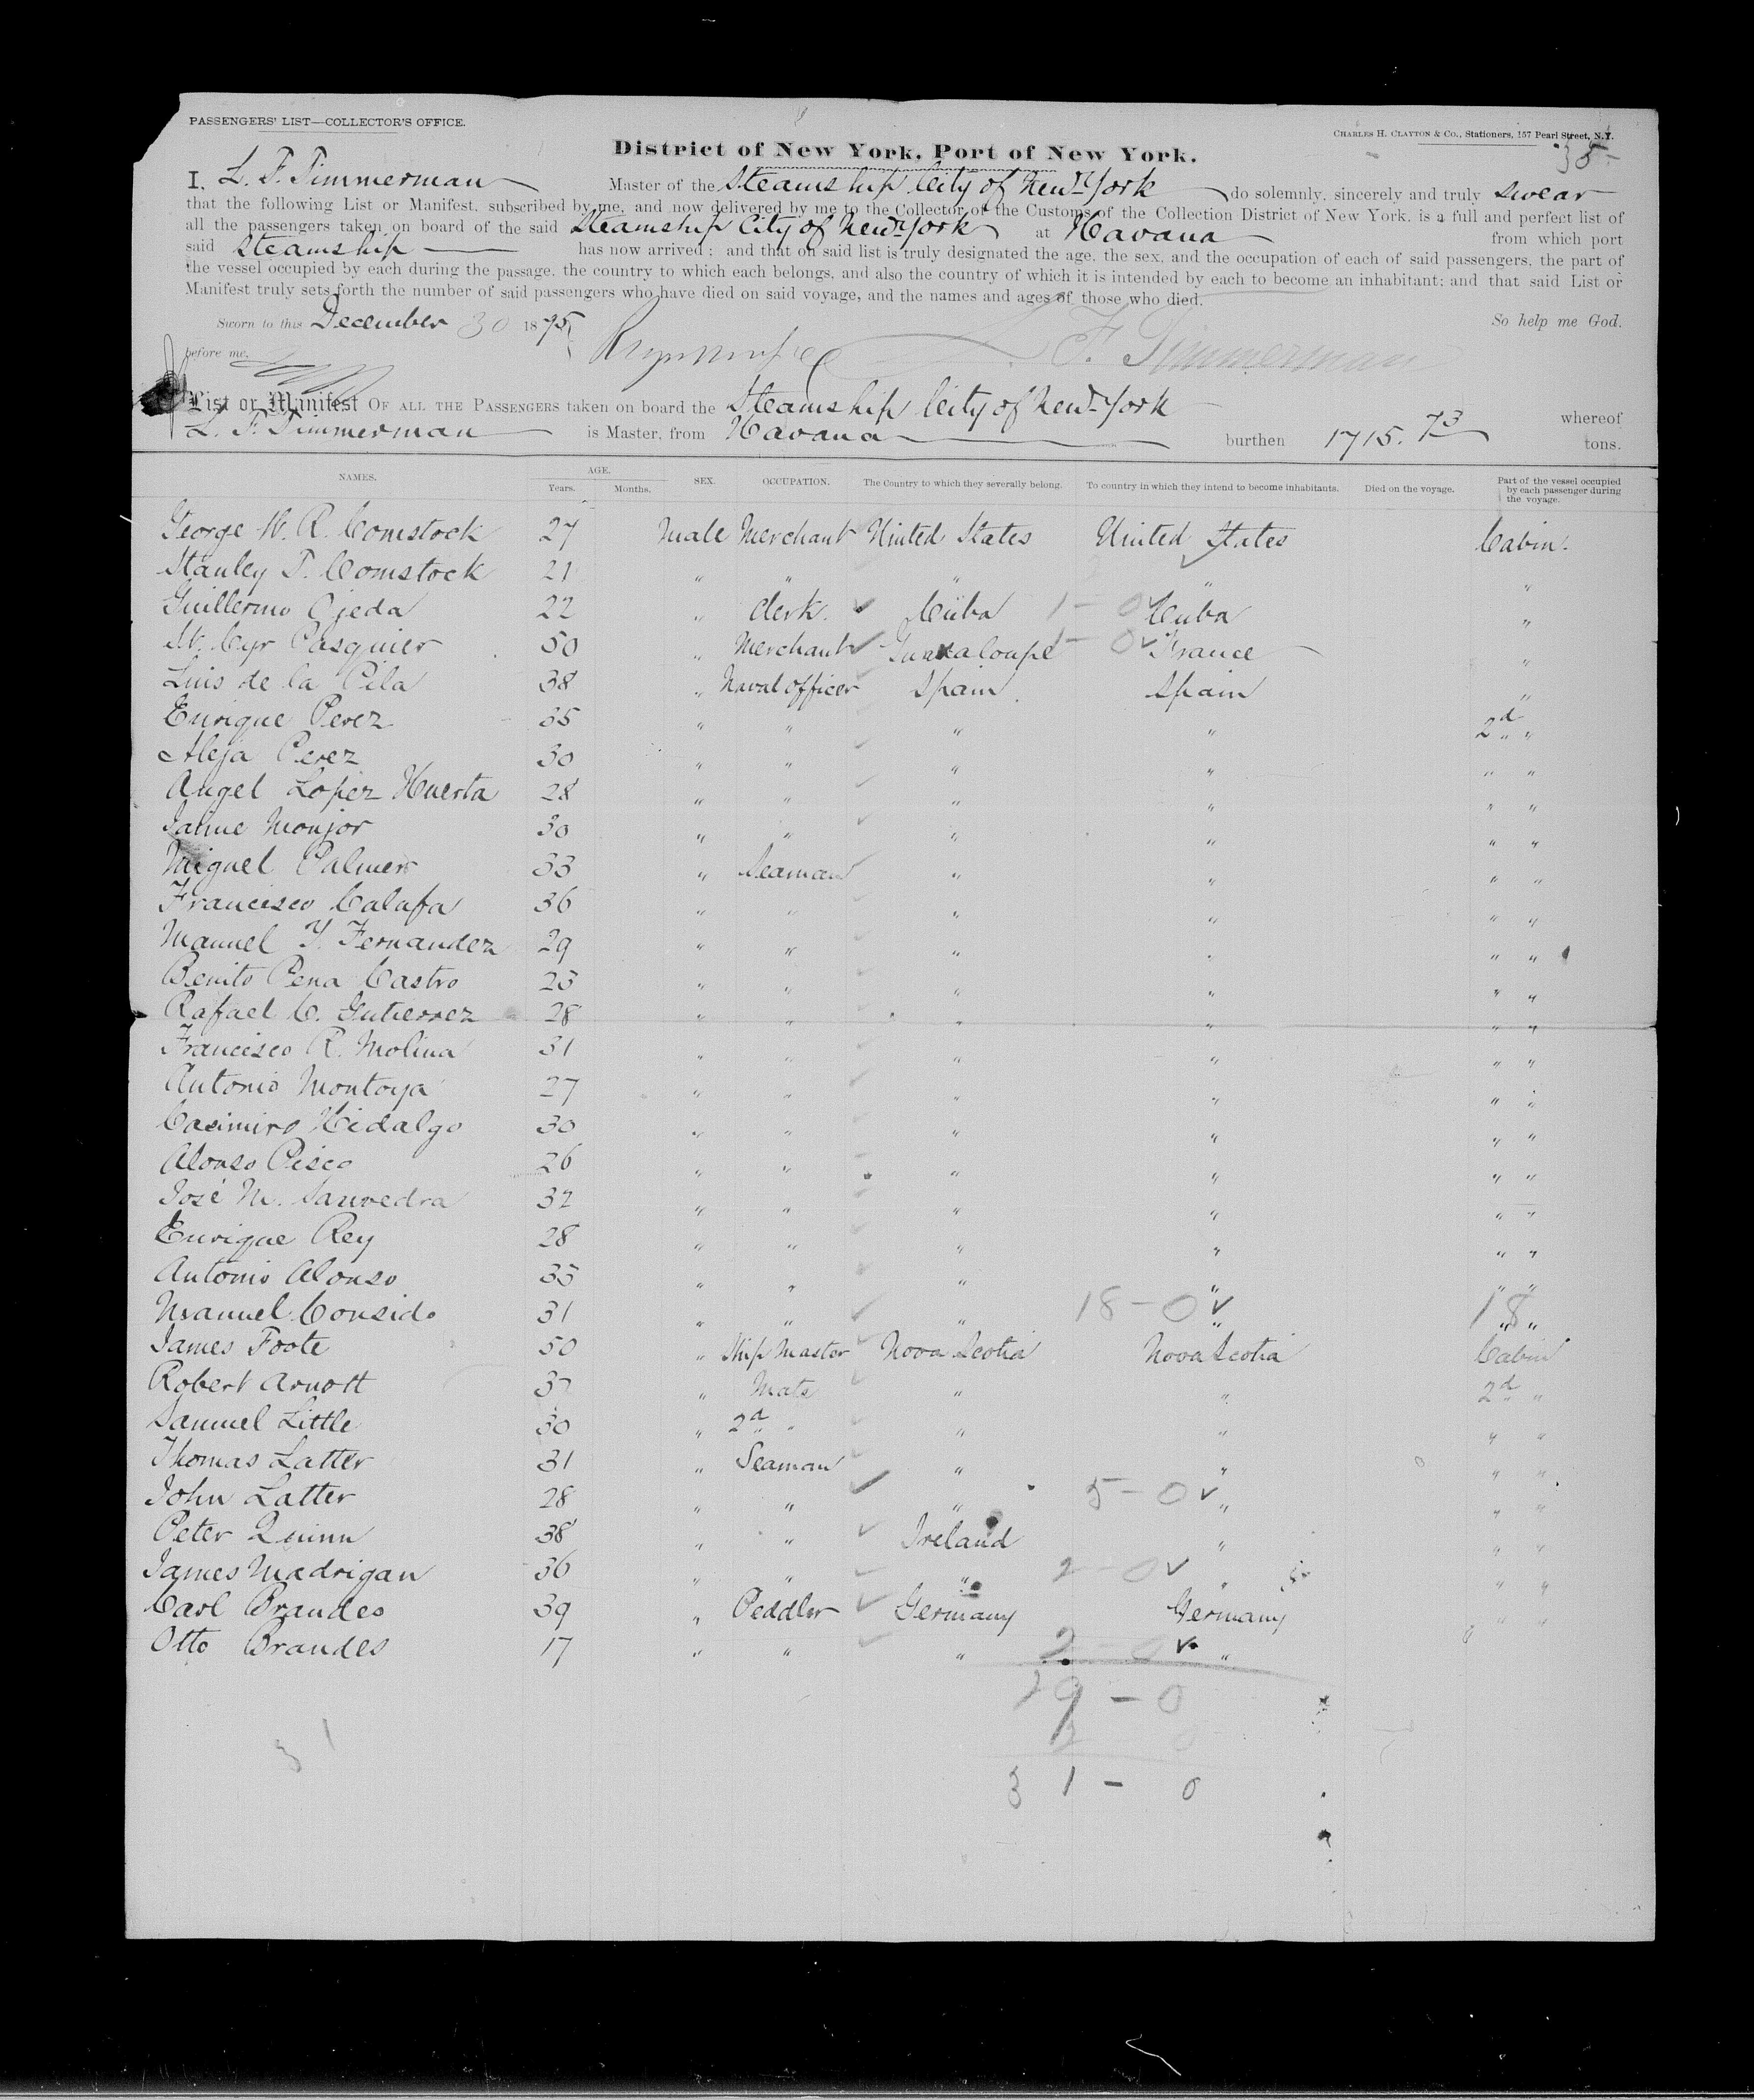 PASSENGERS' LIST—COLLECTOR'S OFFICE.
CHARLES H. CLAYTON & CO., Stationers, 157 Pearl Street, N.Y.
35
District of New York, Port of New York.
I, L. F. Timmerman Master of the Steamship City of New-York do solemnly, sincerely and truly swear
that the following List or Manifest, subscribed by me, and now delivered by me to the Collector of the Customs of the Collection District of New York, is a full and perfect list of
all the passengers taken on board of the said Steamship City of New-York at Havana from which port
said Steamship has now arrived; and that on said list is truly designated the age, the sex, and the occupation of each of said passengers, the part of
the vessel occupied by each during the passage, the country to which each belongs, and also the country of which it is intended by each to become an inhabitant; and that said List or
Manifest truly sets forth the number of said passengers who have died on said voyage, and the names and ages of those who died.
Sworn to this December 30 1875 So help me God.
before me, F. Timmerman
List or Manifest OF ALL THE PASSENGERS taken on board the Steamship City of New-York whereof
L. F. Timmerman is Master, from Havana burthen 1715.73 tons.
NAMES. AGE. Years. Months. SEX. OCCUPATION. The Country to which they severally belong. To country in which they intend to become inhabitants. Died on the voyage. Part of the vessel occupied by each passenger during the voyage.
George W. R. Comstock 27 Male Merchant United States United States Cabin.
Stanley T. Comstock 21 " " " " "
Guillermo Ojeda 22 " Clerk. Cuba 1-0 Cuba "
St. Cyr Pasquier 50 " Merchant Guadaloupe 1-0 France "
Luis de la Pila 38 " Naval officer Spain Spain "
Enrique Perez 35 " " " " 2d "
Aleja Perez 30 " " " " " "
Angel Lopez Huerta 28 " " " " " "
Jaime Monjor 30 " " " " " "
Miguel Palmer 33 " Seaman " " " "
Francisco Calafa 36 " " " " " "
Manuel Y. Fernandez 29 " " " " " "
Benito Pena Castro 25 " " " " " "
Rafael C. Gutierrez 28 " " " " " "
Francisco R. Molina 31 " " " " " "
Antonio Montoya 27 " " " " " "
Casimiro Hidalgo 30 " " " " " "
Alonso 26 " " " " " "
José M. Saavedra 32 " " " " " "
Enrique Rey 28 " " " " " "
Antonio Alonso 35 " " " " " "
Manuel Consido 31 " " " 18-0 " 18 " "
James Foote 50 " Ship Master Nova Scotia Nova Scotia Cabin
Robert Arnott 37 " Mate " " 2d "
Samuel Little 30 " 2d " " " " "
Thomas Latter 31 " Seaman " " " "
John Latter 28 " " " 5-0 " " "
Peter Quinn 38 " " Ireland " " "
James Madrigan 36 " " " 2-0 " " "
Carl Brandes 39 " Peddler Germany Germany " "
Otto Brandes 17 " " " 2-0 "
29-0
2 0
31 31-0